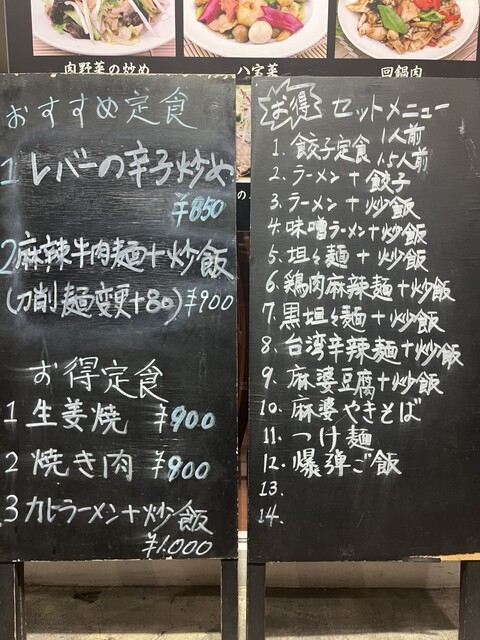 肉野菜の炒め
八宝菜
回鍋肉
おすすめ定食
1 レバーの辛子炒め
¥850
2 麻辣牛肉麺+炒飯
(刀削麺変更+80) ¥900
お得定食
1 生姜焼 ¥900
2 焼き肉 ¥900
3 カレーラーメン+炒飯
¥1,000
お得 セットメニュー
1. 餃子定食 1人前 1.5人前
2. ラーメン+餃子
3. ラーメン+炒飯
4. 味噌ラーメン+炒飯
5. 坦々麺+炒飯
6. 鶏肉麻辣麺+炒飯
7. 黒坦々麺+炒飯
8. 台湾辛辣麺+炒飯
9. 麻婆豆腐+炒飯
10. 麻婆やきそば
11. つけ麺
12. 爆弾ご飯
13.
14.